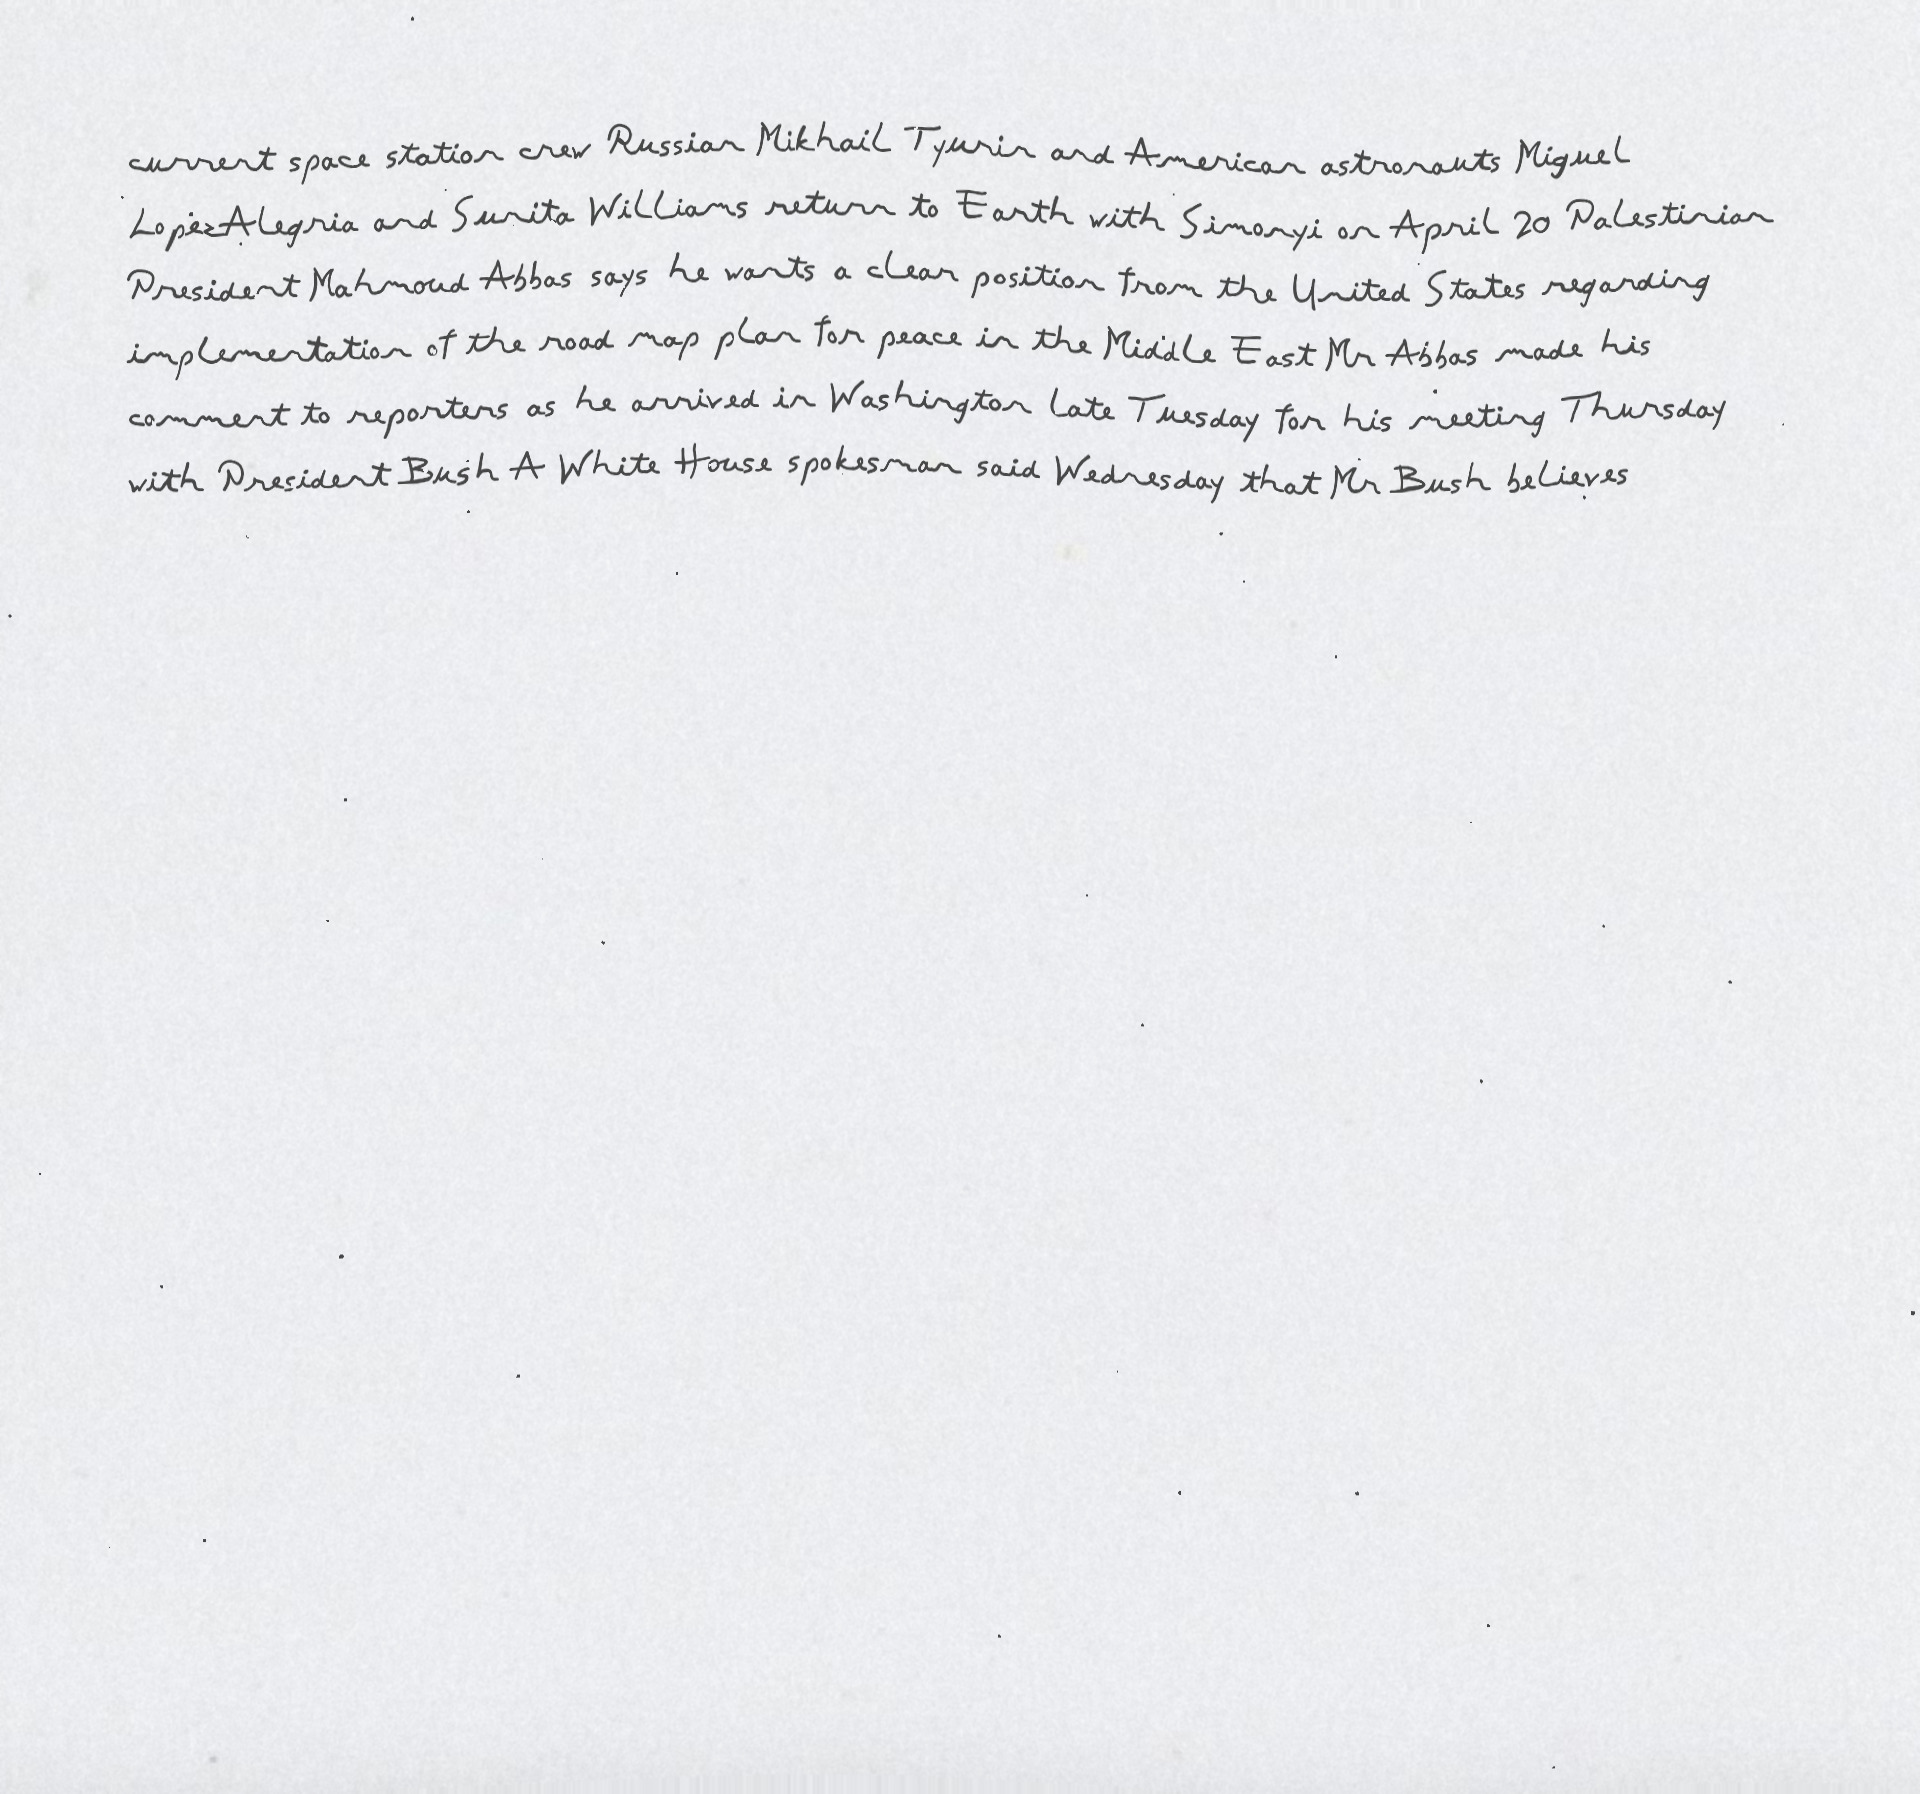 current space station crew Russian Mikhail Tyurin and American astronauts Miguel
LopezAlegria and Sunita Williams return to Earth with Simonyi on April 20 Palestinian
President Mahmoud Abbas says he wants a clear position from the United States regarding
implementation of the road map plan for peace in the Middle East Mr Abbas made his
comment to reporters as he arrived in Washington late Tuesday for his meeting Thursday
with President Bush A White House spokesman said Wednesday that Mr Bush believes